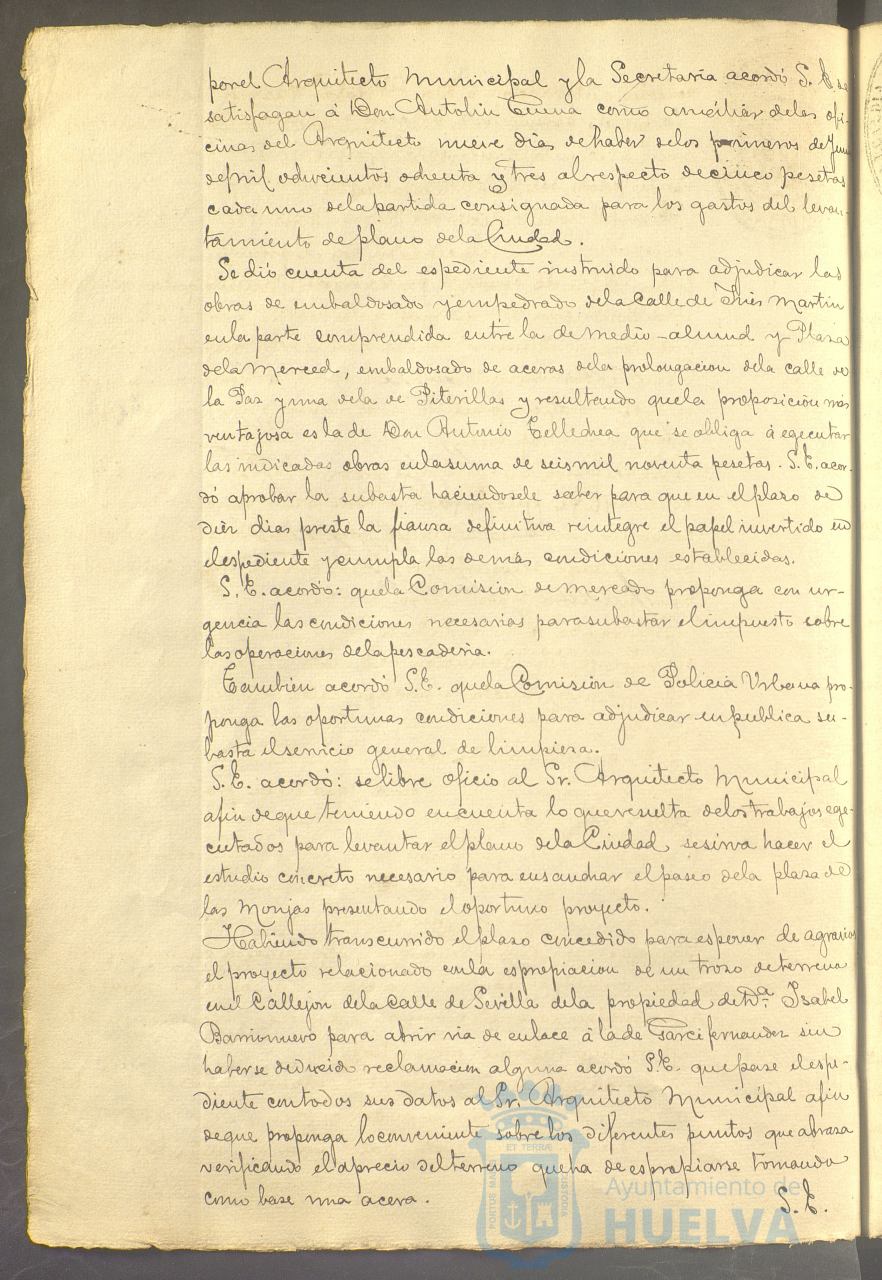 por el Arquitecto Municipal y la Secretaria acordó S. E. se
satisfagan á Don Antolin como auxiliar de las ofi-
cinas del Arquitecto nueve dias de haber de los primeros de
de mil ochocientos ochenta y tres al respecto de cinco pesetas
cada uno de la partida consignada para los gastos del levan-
tamiento de plano de la Ciudad.
Se dió cuenta del espediente instruido para adjudicar las
obras de embaldosado y empedrado de la Calle de Inés Martin
en la parte comprendida entre la de Medio-almud y Plaza
de la Merced, embaldosado de aceras de la prolongacion de la calle de
la Paz y una de la de Piterillas y resultando que la proposicion más
ventajosa es la de Don Antonio Tellechea que se obliga á egecutar
las indicadas obras en la suma de seis mil noventa pesetas. S. E. acor-
dó aprobar la subasta haciendosele saber para que en el plazo de
diez dias preste la fianza definitiva reintegre el papel invertido en
el espediente y cumpla las demás condiciones establecidas.
S. E. acordó: que la Comision de Mercado proponga con ur-
gencia las condiciones necesarias para subastar el impuesto sobre
las operaciones de la pescaderia.
Tambien acordó S. E. que la Comisión de Policia Urbana pro-
ponga las oportunas condiciones para adjudicar en publica su-
basta el servicio general de limpieza.
S. E. acordó: se libre oficio al Sr. Arquitecto Municipal
afin de que teniendo en cuenta lo que resulta de los trabajos ege-
cutados para levantar el plano de la Ciudad se sirva hacer el
estudio concreto necesario para ensanchar el paseo de la plaza de
las Monjas presentando el oportuno proyecto.
Habiendo transcurrido el plazo concedido para esponer de agravios
el proyecto relacionado con la espropiacion de un trozo de terreno
en el Callejon de la Calle de Sevilla de la propiedad de Dª. Isabel
Barrionuevo para abrir via de enlace á la de Garci fernandez sin
haberse deducido reclamacion alguna acordó S. E. que pase el espe-
diente con todos sus datos al Sr. Arquitecto Municipal afin
de que proponga lo conveniente sobre los diferentes puntos que abraza
verificando el aprecio del terreno que ha de espropiarse tomando
como base una acera.
S. E.
ET TERRÆ
PORTUS MARIS
CUSTODIA
Ayuntamiento de
HUELVA